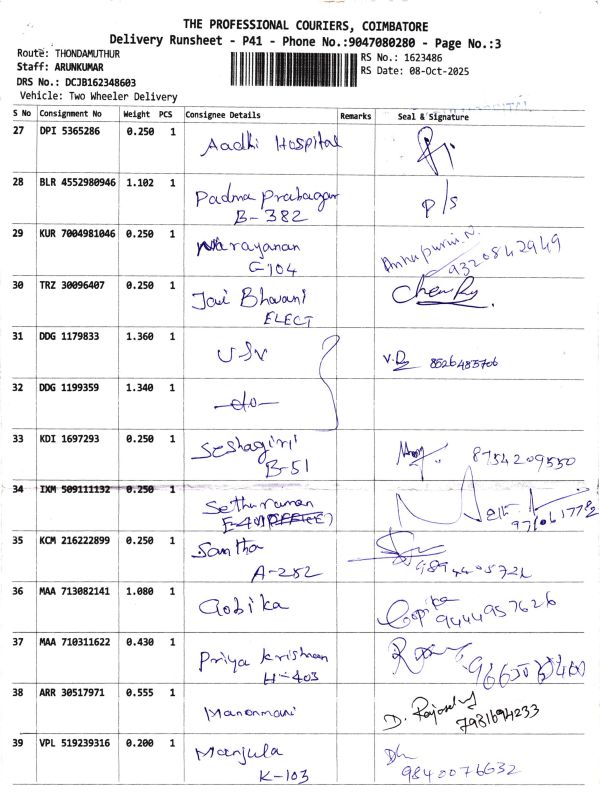 THE PROFESSIONAL COURIERS, COIMBATORE
Delivery Runsheet - P41 - Phone No.:9047080280 - Page No.:3
Route: THONDAMUTHUR
Staff: ARUNKUMAR
DRS No.: DCJB162348603
Vehicle: Two Wheeler Delivery
RS No.: 1623486
RS Date: 08-Oct-2025
S No Consignment No Weight PCS Consignee Details Remarks Seal & Signature
27 DPI 5365286 0.250 1 Aadhi Hospital
28 BLR 4552980946 1.102 1 Padma Prabagar P/S
B-382
29 KUR 7004981046 0.250 1 Narayanan Annapurni.N.
G-104 9320842949
30 TRZ 30096407 0.250 1 Jai Bhavani
ELECT
31 DDG 1179833 1.360 1 8526485706
32 DDG 1199359 1.340 1 -do-
33 KDI 1697293 0.250 1 Seshagiri 8754209550
B-51
34 IXM 509111132 0.250 1 Sethuraman
35 KCM 216222899 0.250 1 Santha
A-252
36 MAA 713082141 1.080 1 Gobika Gopika
9444957626
37 MAA 710311622 0.430 1 Priya Krishnan
H-403
38 ARR 30517971 0.555 1 Manonmani
7981694233
39 VPL 519239316 0.200 1 Manjula
K-103 9840076632